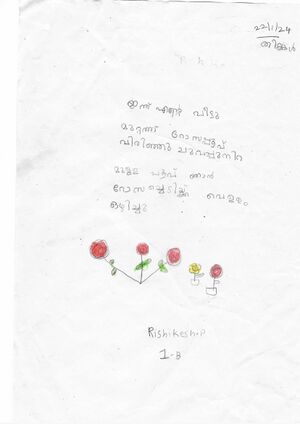 22/1/24
തിങ്കൾ
ഇന്ന് എന്റെ വീട്ടു
മുറ്റത്ത് റോസപ്പൂവ്
വിരിഞ്ഞു ചുവപ്പുനിറ
പൂവ് ഞാൻ
റോസച്ചെടിയ്ക്ക് വെള്ളം
ഒഴിച്ചു
Rishikesh.P
1-B